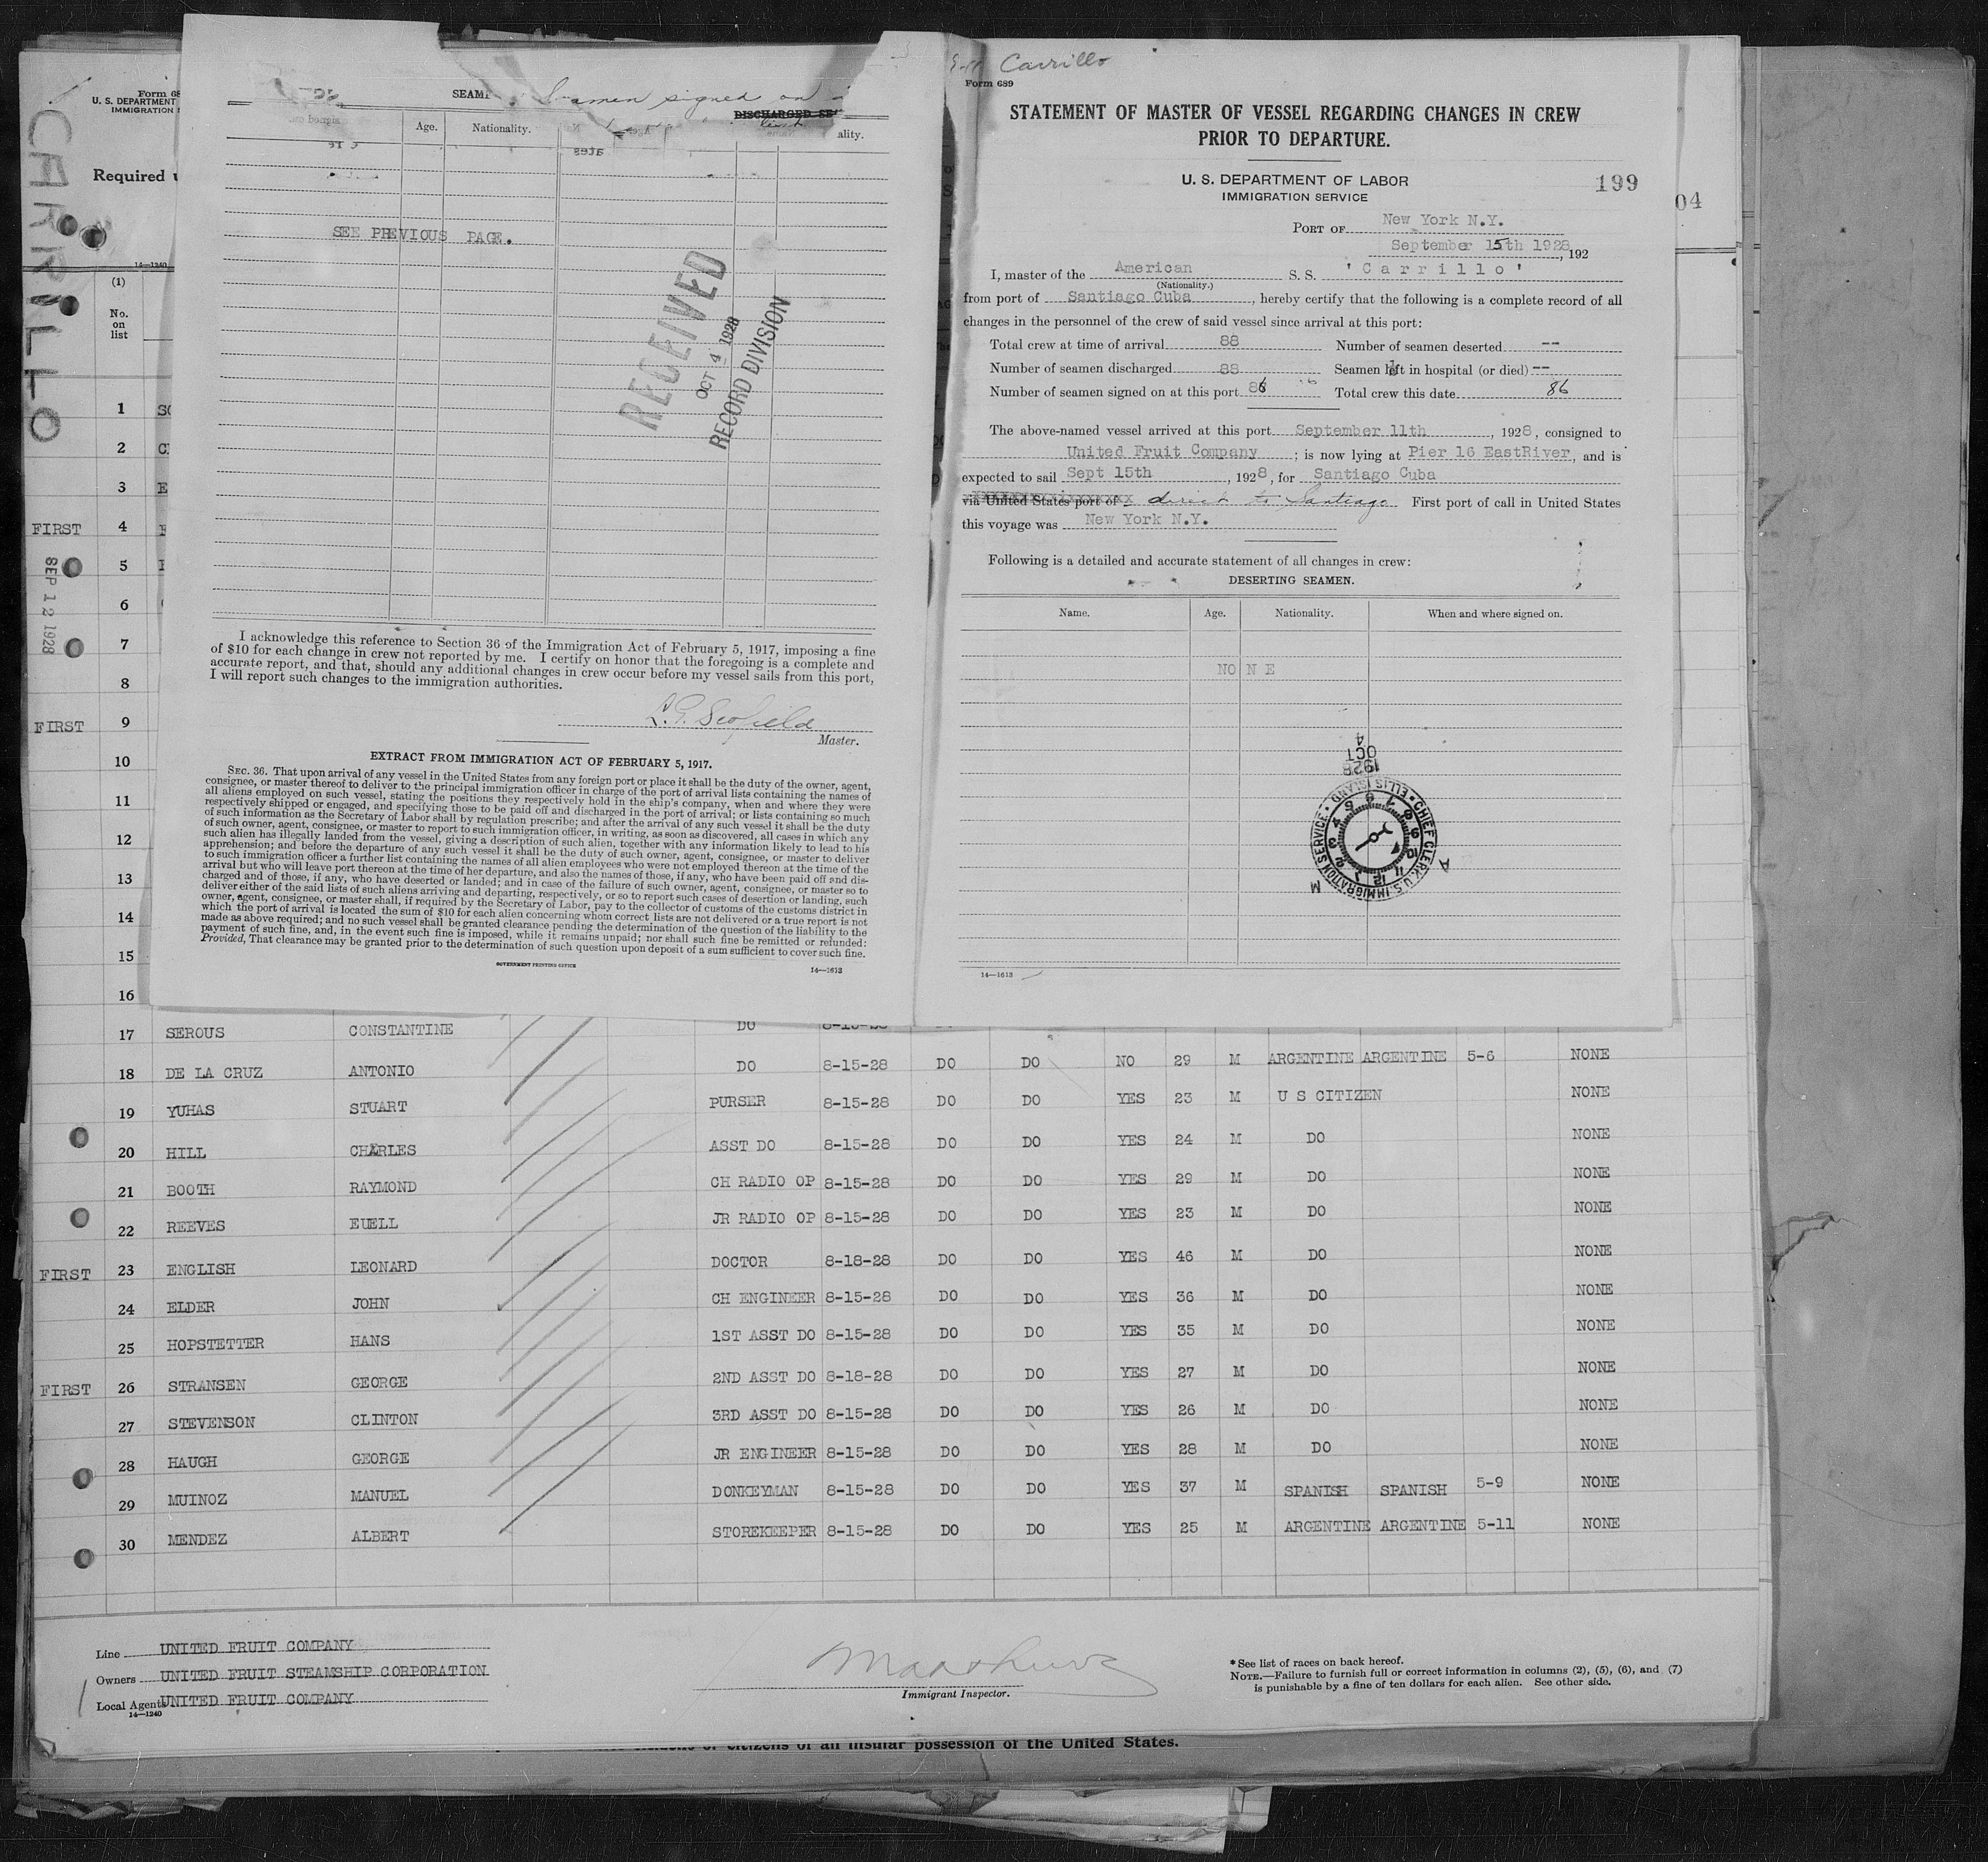 Carrillo
Form 689
STATEMENT OF MASTER OF VESSEL REGARDING CHANGES IN CREW
PRIOR TO DEPARTURE.
U. S. DEPARTMENT OF LABOR
IMMIGRATION SERVICE
199
04
PORT OF New York N.Y.
September 15th 1928, 192
I, master of the American S. S. 'Carrillo'
(Nationality.)
from port of Santiago Cuba, hereby certify that the following is a complete record of all
changes in the personnel of the crew of said vessel since arrival at this port:
Total crew at time of arrival 88 Number of seamen deserted --
Number of seamen discharged 88 Seamen left in hospital (or died) --
Number of seamen signed on at this port 86 Total crew this date 86
The above-named vessel arrived at this port September 11th, 1928, consigned to
United Fruit Company; is now lying at Pier 16 EastRiver, and is
expected to sail Sept 15th, 1928, for Santiago Cuba
via United States port of direct to Santiago First port of call in United States
this voyage was New York N.Y.
Following is a detailed and accurate statement of all changes in crew:
DESERTING SEAMEN.
Name. Age. Nationality. When and where signed on.
NONE
1928
OCT
4
CHIEF CLERK U.S. IMMIGRATION SERVICE · ELLIS ISLAND
14—1613
SEAM
Seamen signed on
DISCHARGED SE
Age. Nationality. ality.
SEE PREVIOUS PAGE.
RECEIVED
OCT 4 1928
RECORD DIVISION
I acknowledge this reference to Section 36 of the Immigration Act of February 5, 1917, imposing a fine
of $10 for each change in crew not reported by me. I certify on honor that the foregoing is a complete and
accurate report, and that, should any additional changes in crew occur before my vessel sails from this port,
I will report such changes to the immigration authorities.
L. G. Scofield
Master.
EXTRACT FROM IMMIGRATION ACT OF FEBRUARY 5, 1917.
SEC. 36. That upon arrival of any vessel in the United States from any foreign port or place it shall be the duty of the owner, agent,
consignee, or master thereof to deliver to the principal immigration officer in charge of the port of arrival lists containing the names of
all aliens employed on such vessel, stating the positions they respectively hold in the ship's company, when and where they were
respectively shipped or engaged, and specifying those to be paid off and discharged in the port of arrival; or lists containing so much
of such information as the Secretary of Labor shall by regulation prescribe; and after the arrival of any such vessel it shall be the duty
of such owner, agent, consignee, or master to report to such immigration officer, in writing, as soon as discovered, all cases in which any
such alien has illegally landed from the vessel, giving a description of such alien, together with any information likely to lead to his
apprehension; and before the departure of any such vessel it shall be the duty of such owner, agent, consignee, or master to deliver
to such immigration officer a further list containing the names of all alien employees who were not employed thereon at the time of the
arrival but who will leave port thereon at the time of her departure, and also the names of those, if any, who have been paid off and dis-
charged and of those, if any, who have deserted or landed; and in case of the failure of such owner, agent, consignee, or master so to
deliver either of the said lists of such aliens arriving and departing, respectively, or so to report such cases of desertion or landing, such
owner, agent, consignee, or master shall, if required by the Secretary of Labor, pay to the collector of customs of the customs district in
which the port of arrival is located the sum of $10 for each alien concerning whom correct lists are not delivered or a true report is not
made as above required; and no such vessel shall be granted clearance pending the determination of the question of the liability to the
payment of such fine, and, in the event such fine is imposed, while it remains unpaid; nor shall such fine be remitted or refunded:
Provided, That clearance may be granted prior to the determination of such question upon deposit of a sum sufficient to cover such fine.
GOVERNMENT PRINTING OFFICE
14—1613
Form 68
U. S. DEPARTMENT
IMMIGRATION
CARRILLO
Required
14—1240
(1)
No. on list
1
2
3
FIRST 4
5
SEP 12 1928
6
7
8
FIRST 9
10
11
12
13
14
15
16
17 SEROUS CONSTANTINE DO
18 DE LA CRUZ ANTONIO DO 8-15-28 DO DO NO 29 M ARGENTINE ARGENTINE 5-6 NONE
19 YUHAS STUART PURSER 8-15-28 DO DO YES 23 M U S CITIZEN NONE
20 HILL CHARLES ASST DO 8-15-28 DO DO YES 24 M DO NONE
21 BOOTH RAYMOND CH RADIO OP 8-15-28 DO DO YES 29 M DO NONE
22 REEVES EUELL JR RADIO OP 8-15-28 DO DO YES 23 M DO NONE
FIRST 23 ENGLISH LEONARD DOCTOR 8-18-28 DO DO YES 46 M DO NONE
24 ELDER JOHN CH ENGINEER 8-15-28 DO DO YES 36 M DO NONE
25 HOPSTETTER HANS 1ST ASST DO 8-15-28 DO DO YES 35 M DO NONE
FIRST 26 STRANSEN GEORGE 2ND ASST DO 8-18-28 DO DO YES 27 M DO NONE
27 STEVENSON CLINTON 3RD ASST DO 8-15-28 DO DO YES 26 M DO NONE
28 HAUGH GEORGE JR ENGINEER 8-15-28 DO DO YES 28 M DO NONE
29 MUINOZ MANUEL DONKEYMAN 8-15-28 DO DO YES 37 M SPANISH SPANISH 5-9 NONE
30 MENDEZ ALBERT STOREKEEPER 8-15-28 DO DO YES 25 M ARGENTINE ARGENTINE 5-11 NONE
Line UNITED FRUIT COMPANY
Owners UNITED FRUIT STEAMSHIP CORPORATION
Local Agents UNITED FRUIT COMPANY
14—1240
Immigrant Inspector.
* See list of races on back hereof.
NOTE.—Failure to furnish full or correct information in columns (2), (5), (6), and (7)
is punishable by a fine of ten dollars for each alien. See other side.
citizens of an insular possession of the United States.